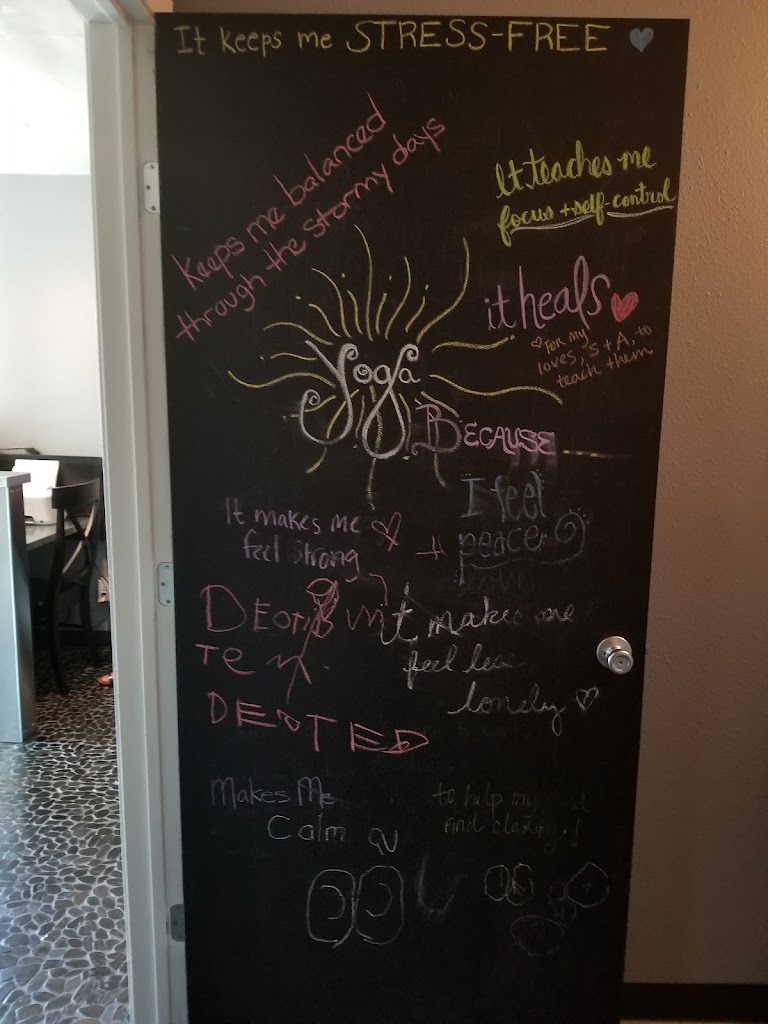 It keeps me STRESS-FREE
Keeps me balanced
through the stormy days
It teaches me
focus + self-control
it heals
For my
loves, S + A, to
teach them
Yoga
BECAUSE
I feel
peace
It makes me
feel strong
it makes me
feel less
lonely
DEOTED
Makes Me
Calm
to help my
find clarity!